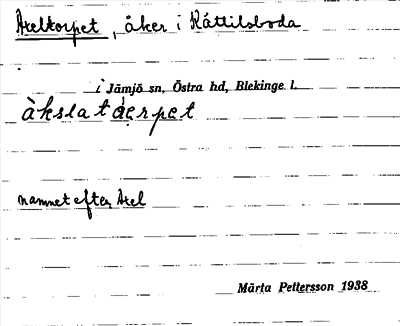 Axeltorpet, åker i Kättilsboda
i Jämjö sn, Östra hd, Blekinge l.
àkslatáerpet
namnet efter Axel
Märta Pettersson 1938